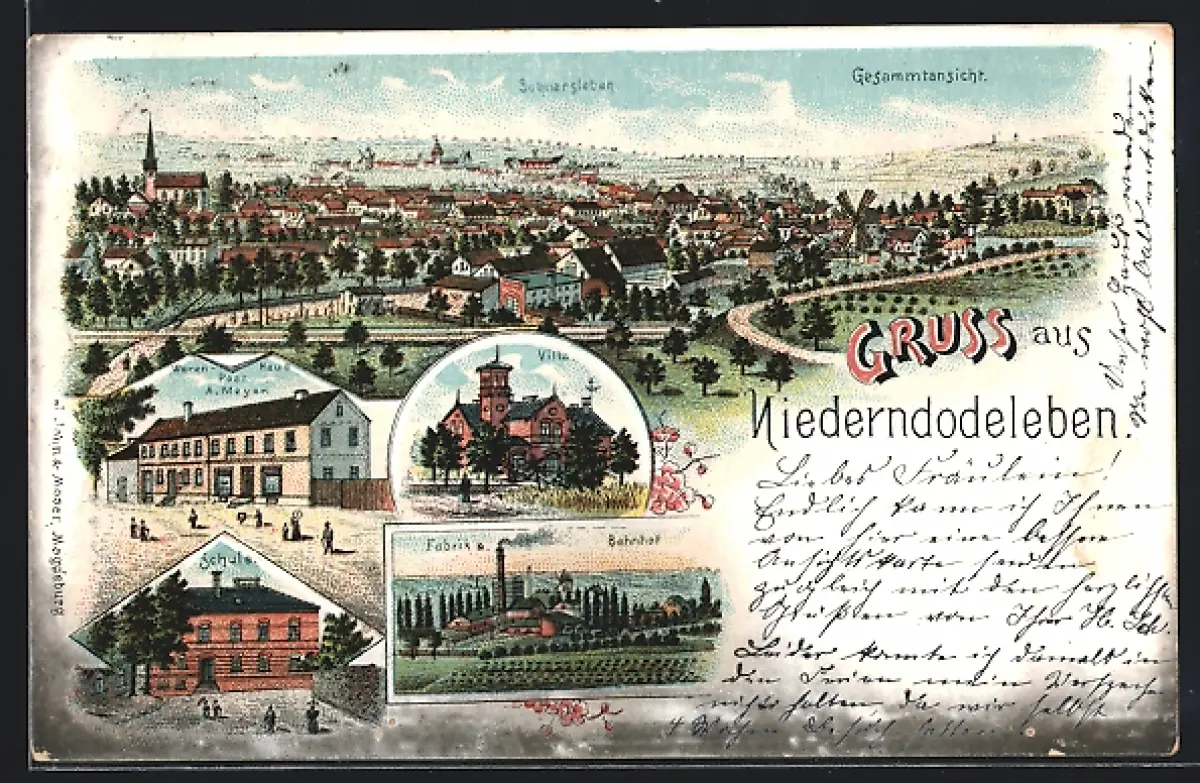 Schnarsleben
Gesammtansicht.
GRUSS aus
Niederndodeleben.
Waren-Haus
Post
A. Meyer
Villa
Schule.
Fabrik u. Bahnhof
Magdeburg
Liebes Fräulein!
Endlich kann ich Ihnen
von hier eine bessere
Ansichtskarte senden
zugleich mit den herzlichsten
Grüßen von Ihrer
Leider konnte ich damals in
den Ferien mein Versprechen
nicht halten, da wir selbst
4 Wochen Besuch hatten